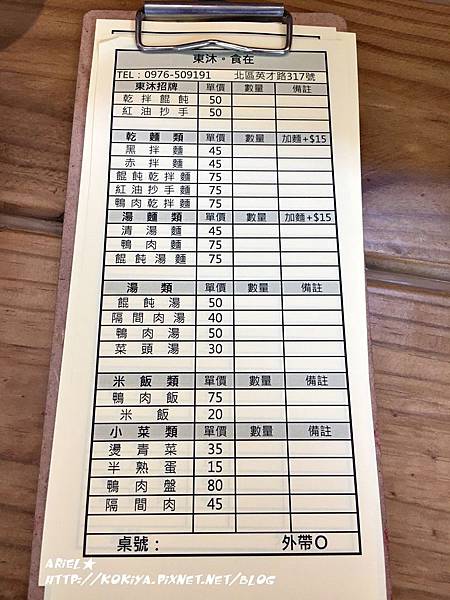 東沐。食在
TEL：0976-509191 北區英才路317號
東沐招牌 單價 數量 備註
乾拌餛飩 50
紅油抄手 50
乾麵類 單價 數量 加麵+$15
黑拌麵 45
赤拌麵 45
餛飩乾拌麵 75
紅油抄手麵 75
鴨肉乾拌麵 75
湯麵類 單價 數量 加麵+$15
清湯麵 45
鴨肉麵 75
餛飩湯麵 75
湯類 單價 數量 備註
餛飩湯 50
隔間肉湯 40
鴨肉湯 50
菜頭湯 30
米飯類 單價 數量 備註
鴨肉飯 75
米飯 20
小菜類 單價 數量 備註
燙青菜 35
半熟蛋 15
鴨肉盤 80
隔間肉 45
桌號： 外帶O
ARIEL★
HTTP://KOKIYA.PIXNET.NET/BLOG